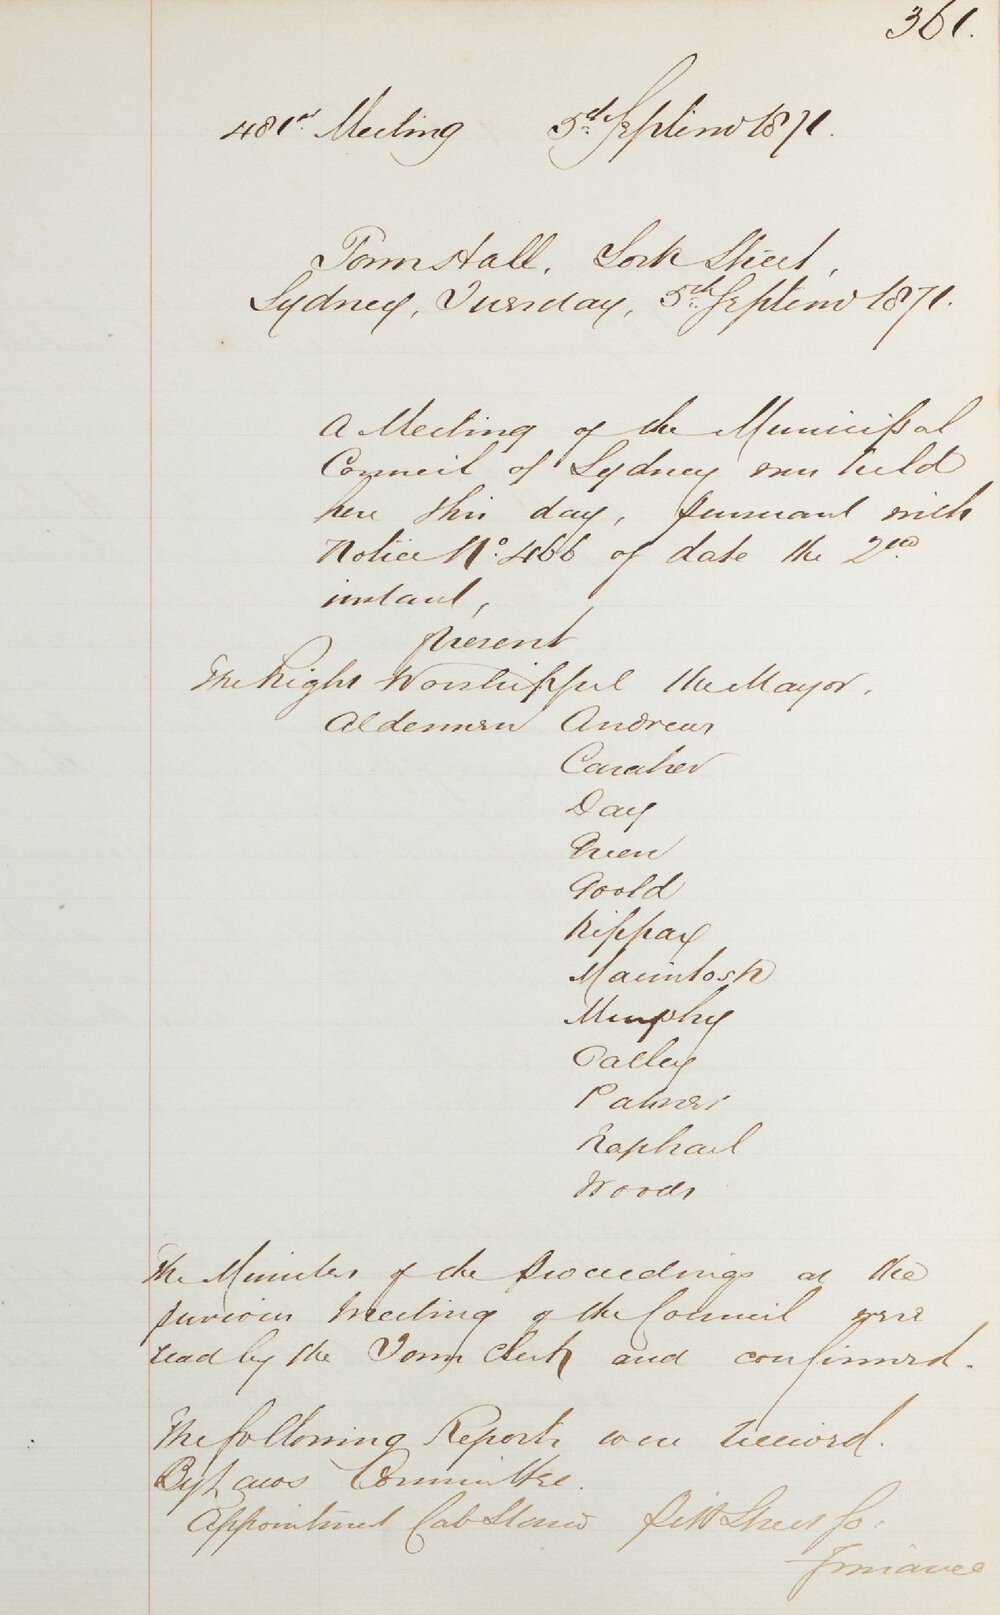 361.
481st. Meeting 5th Septemr 1871.
Town Hall, York Street,
Sydney, Tuesday, 5th Septemr 1871.
A Meeting of the Municipal
Council of Sydney was held
here this day, pursuant with
Notice No. 466 of date the 2nd
instant,
present
The Right Worshipful the Mayor.
Aldermen Andrews
Caraher
Day
Green
Goold
Kippax
Macintosh
Murphy
Oatley
Palmer
Raphael
Woods
The Minutes of the proceedings at the
previous Meeting of the Council were
read by the Town Clerk and confirmed.
The following Reports were received.
By Laws Committee.
Appointment Cab Stand Pitt Street fo.